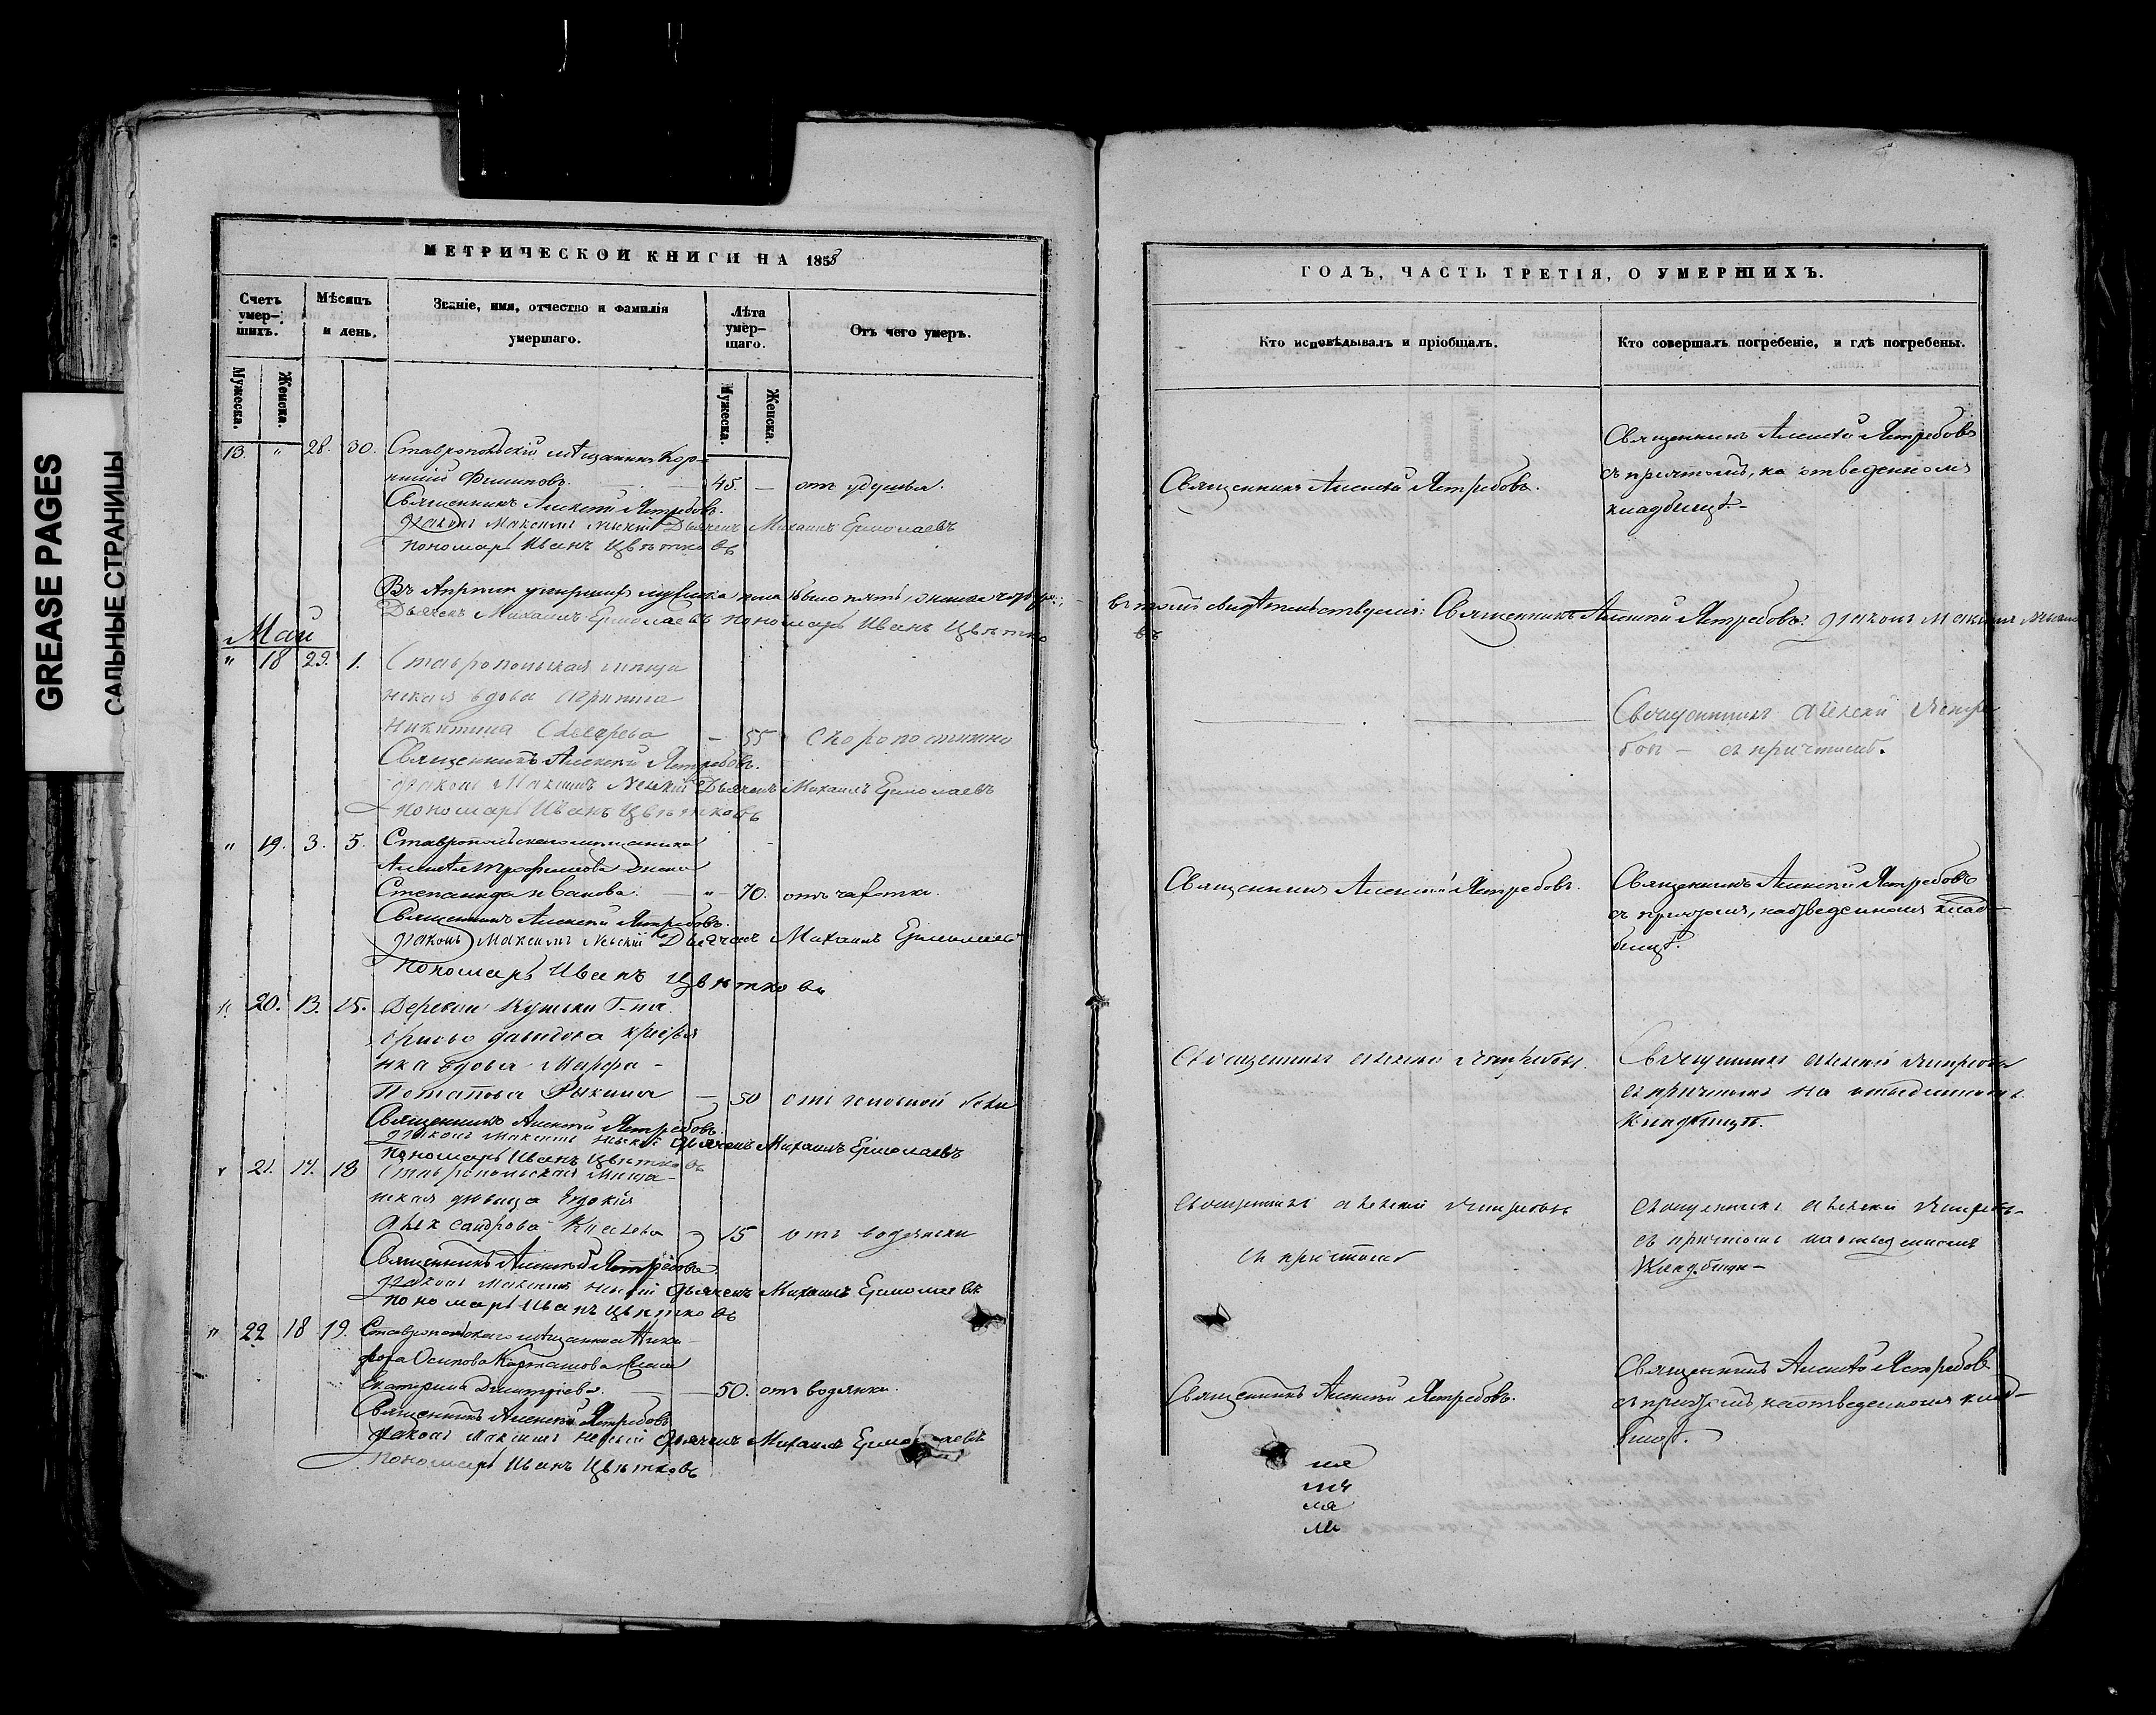 GREASE PAGES
САЛЬНЫЕ СТРАНИЦЫ
МЕТРИЧЕСКОЙ КНИГИ НА 1858
Счетъ умер-шихъ.
Мѣсяцъ и день.
Званіе, имя, отчество и фамилія умершаго.
Лѣта умер-шаго.
Отъ чего умеръ.
Мужеска.
Женска.
Мужеска.
Женска.
13. " 28. 30. Ставропольскій мѣщанинъ Кор-
нилій Филиповъ. 45. — отъ удушья.
Священникъ Алексѣй Ястребовъ.
Діаконъ Максимъ Невскій Дьячекъ Михаилъ Ермолаевъ
Пономарь Иванъ Цвѣтковъ
Въ Апрѣлѣ умершихъ мужеска пола было пять, женска
Дьячекъ Михаилъ Ермолаевъ Пономарь Иванъ Цвѣтко
Май
" 18 29. 1. Ставропольская мѣща
нская вдова
Никитина — 55 Скоропостижно
Священникъ Алексѣй Ястребовъ.
Діаконъ Максимъ Невскій Дьячекъ Михаилъ Ермолаевъ
Пономарь Иванъ Цвѣтковъ
" 19. 3. 5. Ставропольскаго мѣщанина
Алексѣя Трофимова жена
Степанида Иванова. " 70. отъ чахотки.
Священникъ Алексѣй Ястребовъ.
Діаконъ Максимъ Невскій Дьячекъ Михаилъ Ермолаевъ
Пономарь Иванъ Цвѣтковъ
" 20. 13. 15. Деревни Г-на
давыдова
нка вдова Марфа
Потапова — 50 отъ головной боли
Священникъ Алексѣй Ястребовъ.
Діаконъ Максимъ Невскій Дьячекъ Михаилъ Ермолаевъ
Пономарь Иванъ Цвѣтковъ
" 21. 17. 18 Ставропольская мѣща-
нская дѣвица Евдокія
Александрова 15 отъ водянки
Священникъ Алексѣй Ястребовъ
Діаконъ Максимъ Невскій Дьячекъ Михаилъ Ермолаевъ
Пономарь Иванъ Цвѣтковъ
" 22 18 19. Ставропольскаго мѣщанина Ники-
фора Осипова Карташова жена
Екатерина Дмитріева. — 50. отъ водянки.
Священникъ Алексѣй Ястребовъ
Діаконъ Максимъ Невскій Дьячекъ Михаилъ Ермолаевъ
Пономарь Иванъ Цвѣтковъ
ГОДЪ, ЧАСТЬ ТРЕТІЯ, О УМЕРШИХЪ.
Кто исповѣдывалъ и пріобщалъ.
Кто совершалъ погребеніе, и гдѣ погребены.
Священникъ Алексѣй Ястребовъ.
Священникъ Алексѣй Ястребовъ
съ причтомъ, на отведенномъ
кладбищѣ.
въ томъ свидѣтельствуемъ: Священникъ Алексѣй Ястребовъ. Діаконъ Максимъ
въ
Священникъ Алексѣй Ястре
бовъ — съ причтомъ.
Священникъ Алексѣй Ястребовъ.
Священникъ Алексѣй Ястребовъ
съ причтомъ, на отведенномъ клад-
бищѣ.
Священникъ Алексѣй Ястребовъ.
Священникъ Алексѣй Ястребовъ
съ причтомъ на отведенномъ
кладбищѣ.
Священникъ Алексѣй Ястребовъ
съ причтомъ
Священникъ Алексѣй Ястребовъ
съ причтомъ на отведенномъ
кладбищѣ
Священникъ Алексѣй Ястребовъ.
Священникъ Алексѣй Ястребовъ
съ причтомъ, на отведенномъ клад-
бищѣ.